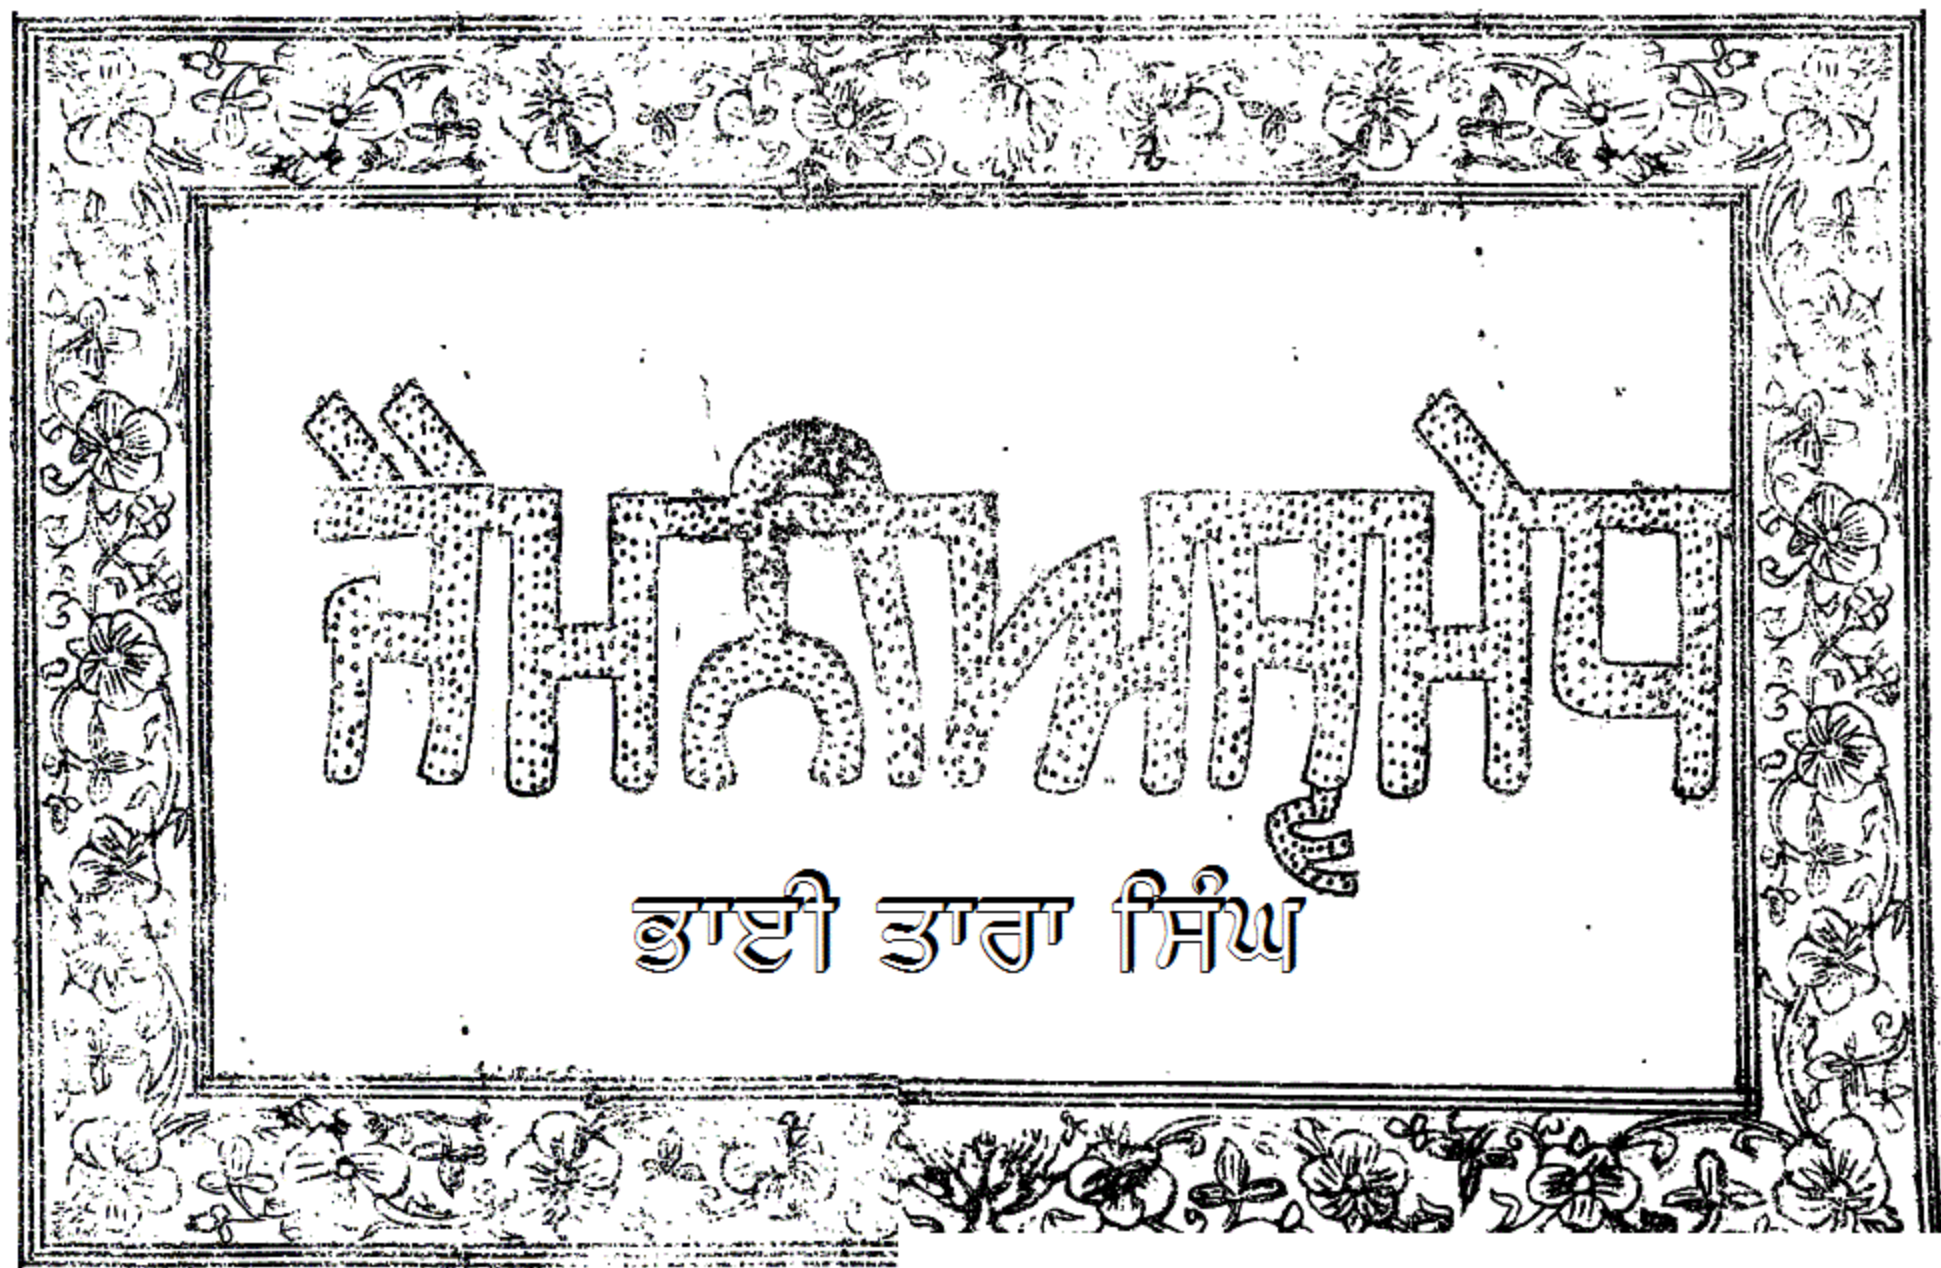 ਜੈਮਨੀਅਸ੍ਵਮੇਧ
ਭਾਈ ਤਾਰਾ ਸਿੰਘ